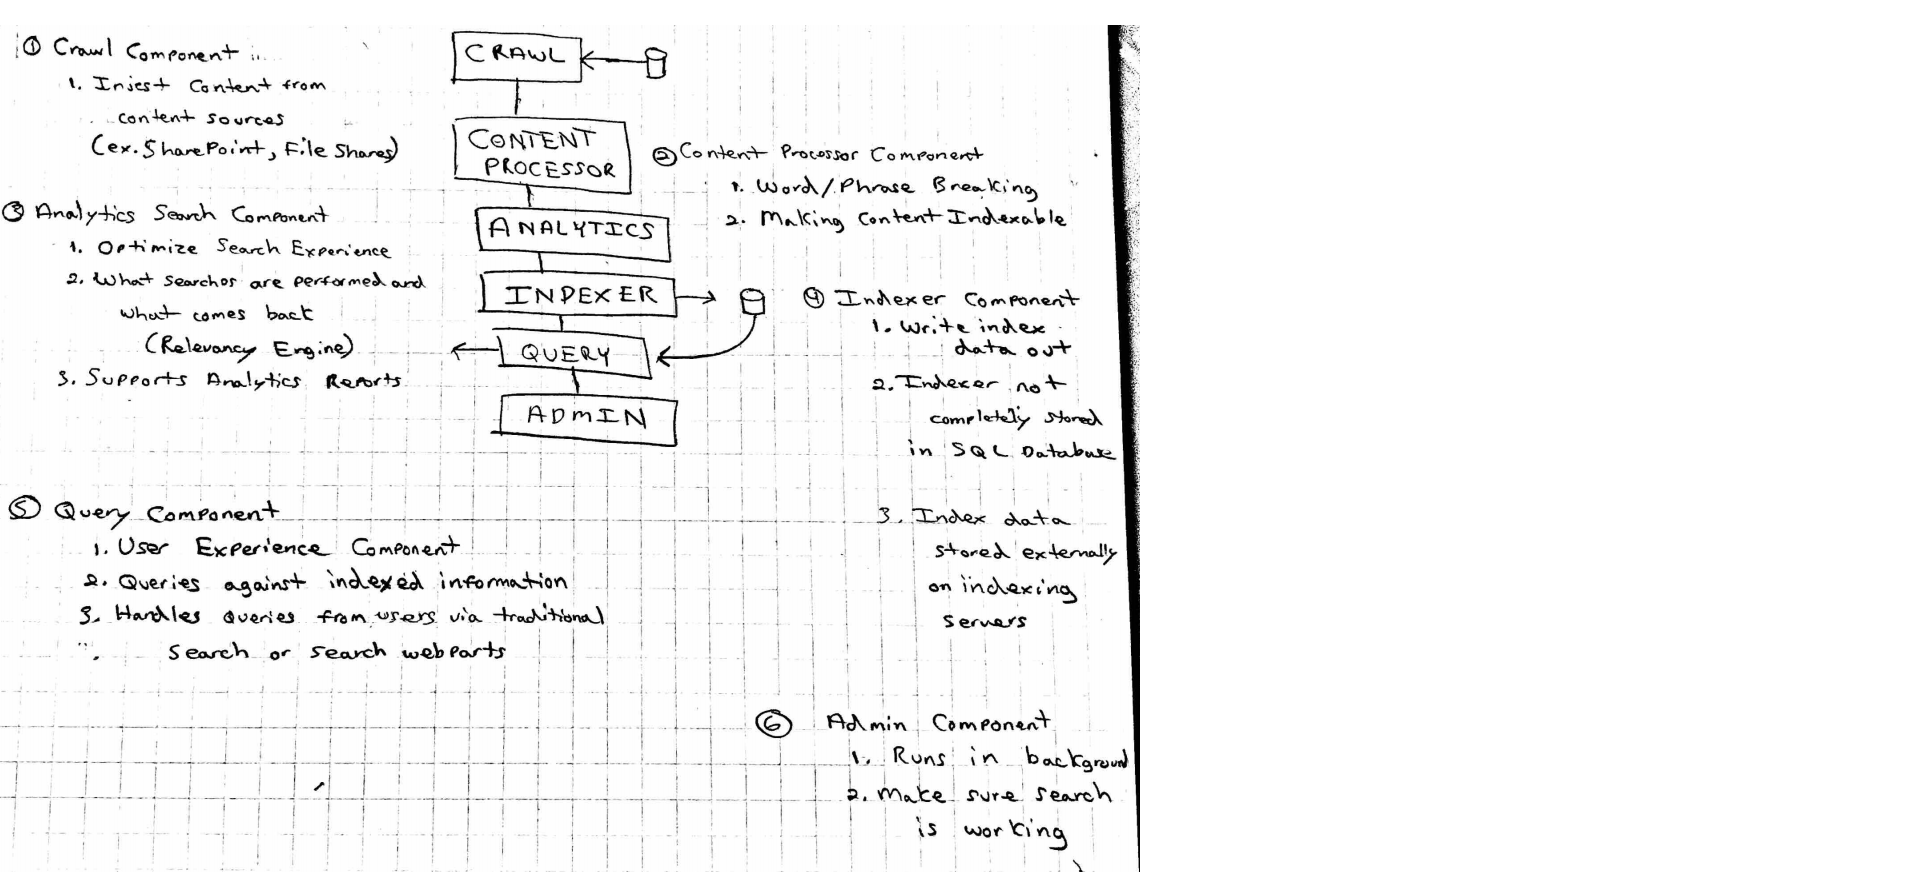 ① Crawl Component
1. Injest Content from
content sources
(ex. SharePoint, File Shares)
CRAWL
CONTENT
PROCESSOR
ANALYTICS
INDEXER
QUERY
ADMIN
② Content Processor Component
1. Word/Phrase Breaking
2. Making Content Indexable
③ Analytics Search Component
1. Optimize Search Experience
2. What searches are performed and
what comes back
(Relevancy Engine)
3. Supports Analytics Reports
④ Indexer Component
1. Write index
data out
2. Indexer not
completely stored
in SQL Database
3. Index data
stored externally
on indexing
servers
⑤ Query Component
1. User Experience Component
2. Queries against indexed information
3. Handles queries from users via traditional
Search or search webparts
⑥ Admin Component
1. Runs in background
2. Make sure search
is working